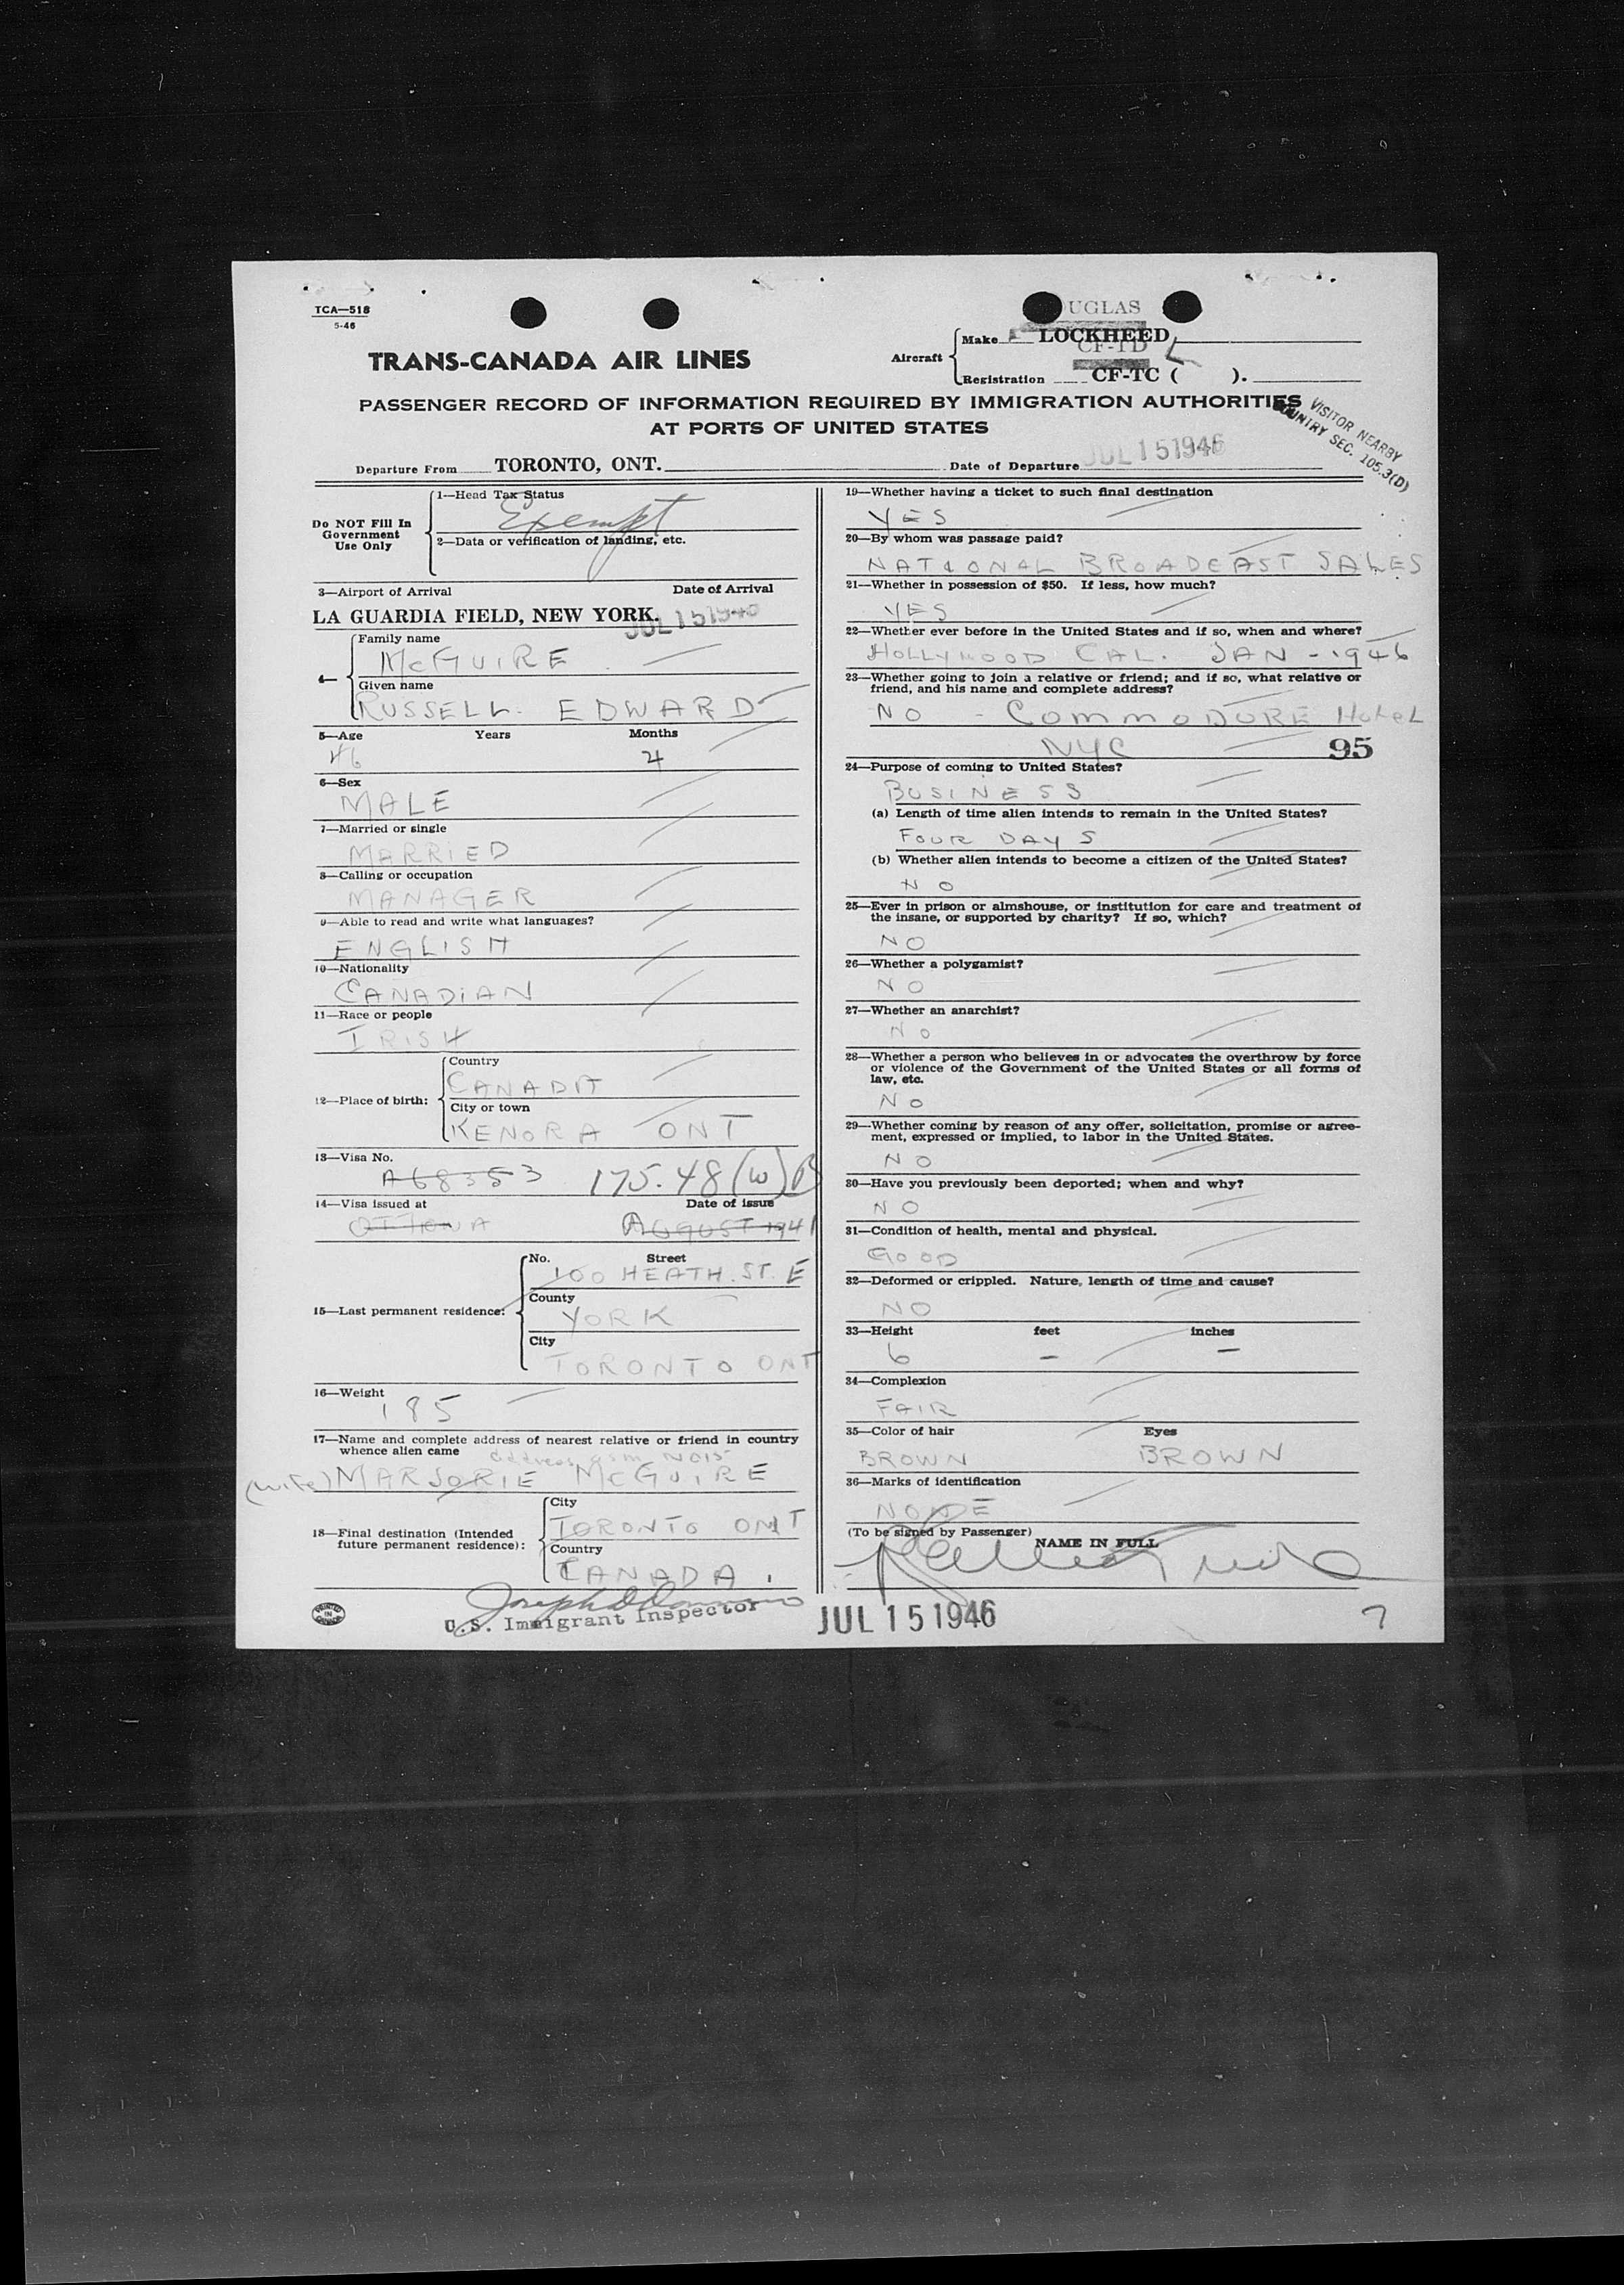 TCA—518
5-46
UGLAS
TRANS-CANADA AIR LINES
Aircraft
Make LOCKHEED
CF-TD L
Registration CF-TC ( ).
PASSENGER RECORD OF INFORMATION REQUIRED BY IMMIGRATION AUTHORITIES
AT PORTS OF UNITED STATES
VISITOR NEARBY
COUNTRY SEC. 105.3(D)
Departure From TORONTO, ONT. Date of Departure JUL 15 1946
Do NOT Fill In
Government
Use Only
1—Head Tax Status
Exempt
2—Data or verification of landing, etc.
3—Airport of Arrival Date of Arrival
LA GUARDIA FIELD, NEW YORK. JUL 15 1946
4—
Family name
McGUIRE
Given name
RUSSELL EDWARD
5—Age Years Months
46 4
6—Sex
MALE
7—Married or single
MARRIED
8—Calling or occupation
MANAGER
9—Able to read and write what languages?
ENGLISH
10—Nationality
CANADIAN
11—Race or people
IRISH
12—Place of birth:
Country
CANADA
City or town
KENORA ONT
13—Visa No.
A68353 175.48 (W) B
14—Visa issued at Date of issue
OTTAWA AUGUST 1941
15—Last permanent residence:
No. Street
100 HEATH. ST. E
County
YORK
City
TORONTO ONT
16—Weight
185
17—Name and complete address of nearest relative or friend in country
whence alien came
address as in No 15
(wife) MARJORIE McGUIRE
18—Final destination (Intended
future permanent residence):
City
TORONTO ONT
Country
CANADA
PRINTED IN CANADA
Joseph D
U.S. Immigrant Inspector
19—Whether having a ticket to such final destination
YES
20—By whom was passage paid?
NATIONAL BROADCAST SALES
21—Whether in possession of $50. If less, how much?
YES
22—Whether ever before in the United States and if so, when and where?
HOLLYWOOD CAL. JAN - 1946
23—Whether going to join a relative or friend; and if so, what relative or
friend, and his name and complete address?
NO - COMMODORE HOTEL
NYC 95
24—Purpose of coming to United States?
BUSINESS
(a) Length of time alien intends to remain in the United States?
FOUR DAYS
(b) Whether alien intends to become a citizen of the United States?
NO
25—Ever in prison or almshouse, or institution for care and treatment of
the insane, or supported by charity? If so, which?
NO
26—Whether a polygamist?
NO
27—Whether an anarchist?
NO
28—Whether a person who believes in or advocates the overthrow by force
or violence of the Government of the United States or all forms of
law, etc.
NO
29—Whether coming by reason of any offer, solicitation, promise or agree-
ment, expressed or implied, to labor in the United States.
NO
30—Have you previously been deported; when and why?
NO
31—Condition of health, mental and physical.
GOOD
32—Deformed or crippled. Nature, length of time and cause?
NO
33—Height feet inches
6 - -
34—Complexion
FAIR
35—Color of hair Eyes
BROWN BROWN
36—Marks of identification
NONE
(To be signed by Passenger) NAME IN FULL
JUL 15 1946
7